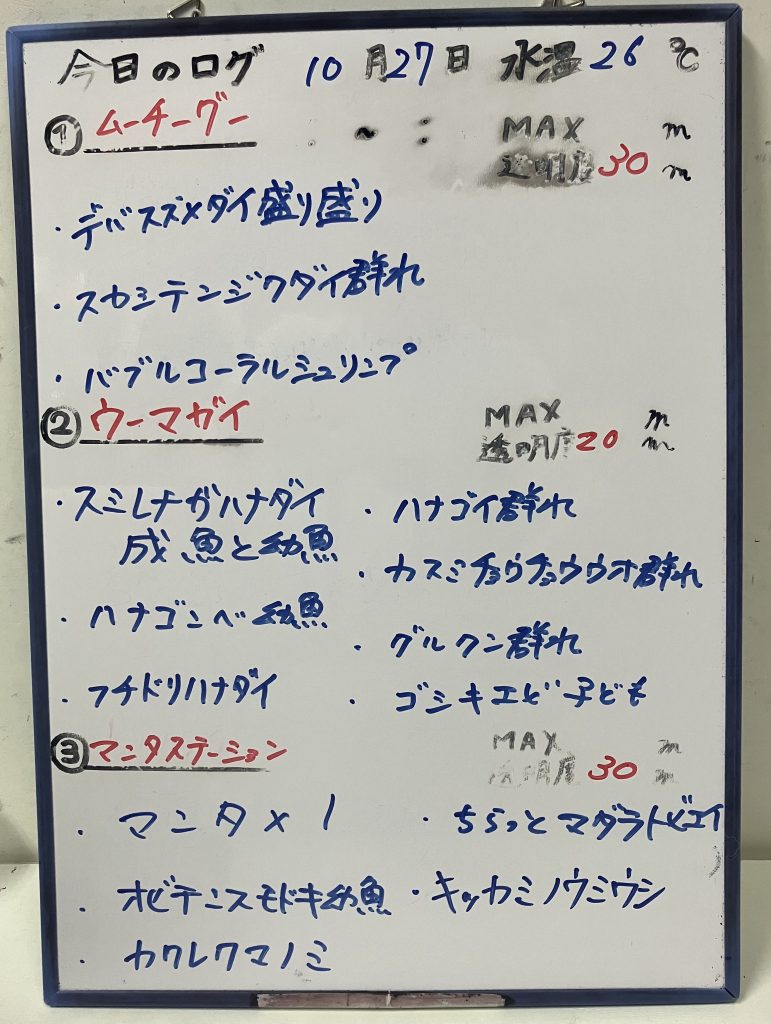 今日のログ 10月27日 水温26℃
① ムーチーグー ~ : MAX m
透明度30m
・デバスズメダイ盛り盛り
・スカシテンジクダイ群れ
・バブルコーラルシュリンプ
② ウーマガイ MAX m
透明度20m
・スミレナガハナダイ
成魚と幼魚
・ハナゴンベ幼魚
・フチドリハナダイ
・ハナゴイ群れ
・カスミチョウチョウウオ群れ
・グルクン群れ
・ゴシキエビ子ども
③ マンタステーション MAX m
透明度30m
・マンタ×1
・オビテンスモドキ幼魚
・カクレクマノミ
・ちらっとマダラトビエイ
・キッカミノウミウシ